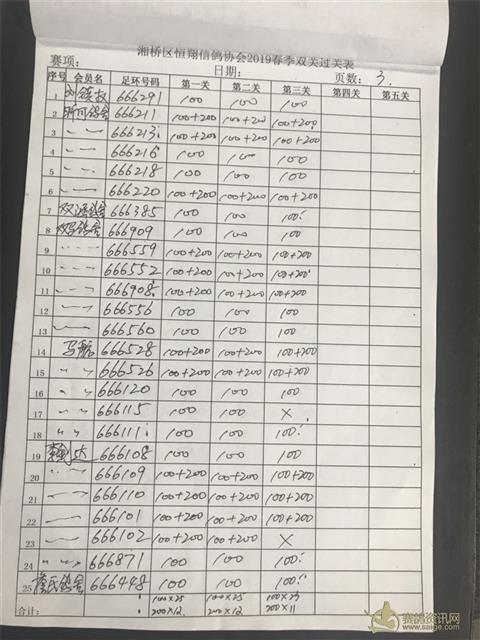 湘桥区恒翔信鸽协会2019春季双关过关表
赛项: 日期: 页数: 3.
序号 会员名 足环号码 第一关 第二关 第三关 第四关 第五关
1 666291 100 100 100
2 666211 100+200 100+200 100+200
3 〃 666213 100+200 100+200 100+200
4 〃 666216 100 100 100
5 〃 666218 100 100 100
6 〃 666220 100+200 100+200 100+200
7 666385 100 100 100
8 666909 100 100 100
9 〃 666559 100+200 100+200 100+200
10 〃 666552 100+200 100+200 100+200
11 〃 666908 100+200 100+200 100+200
12 〃 666556 100 100 100
13 〃 666560 100 100 100
14 666528 100+200 100+200 100+200
15 〃 666526 100+200 100+200 100+200
16 〃 666120 100 100 100
17 〃 666115 100 100 ×
18 〃 666111 100 100 100
19 666108 100 100 100
20 〃 666109 100+200 100+200 100+200
21 〃 666110 100+200 100+200 100+200
22 〃 666101 100+200 100+200 100+200
23 〃 666102 100+200 100+200 ×
24 〃 666871 100 100 100
25 666448 100 100 100
100×25 100×25 100×23
合计: 200×12 200×12 200×11
赛鸽资讯网
www.saige.com